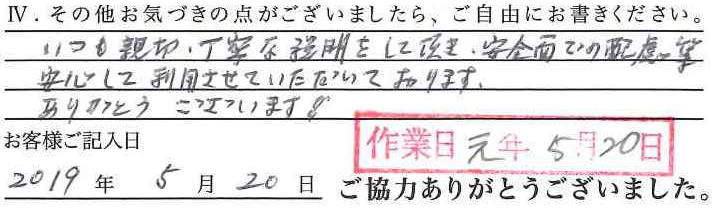 Ⅳ．その他お気づきの点がございましたら、ご自由にお書きください。
いつも親切・丁寧な説明をして頂き、安全面での配慮等
安心して利用させていただいております。
ありがとうございます。
お客様ご記入日
作業日 元年 5月20日
2019 年 5 月 20 日 ご協力ありがとうございました。